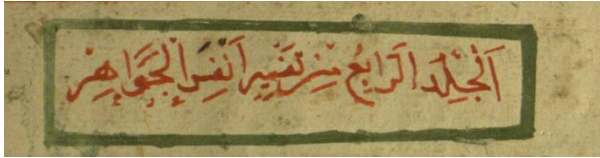 اَلْجِلْدُ الرَّابِعُ مِنْ تَفْسِيرِ اَنْفَسِ الْجَوَاهِرْ